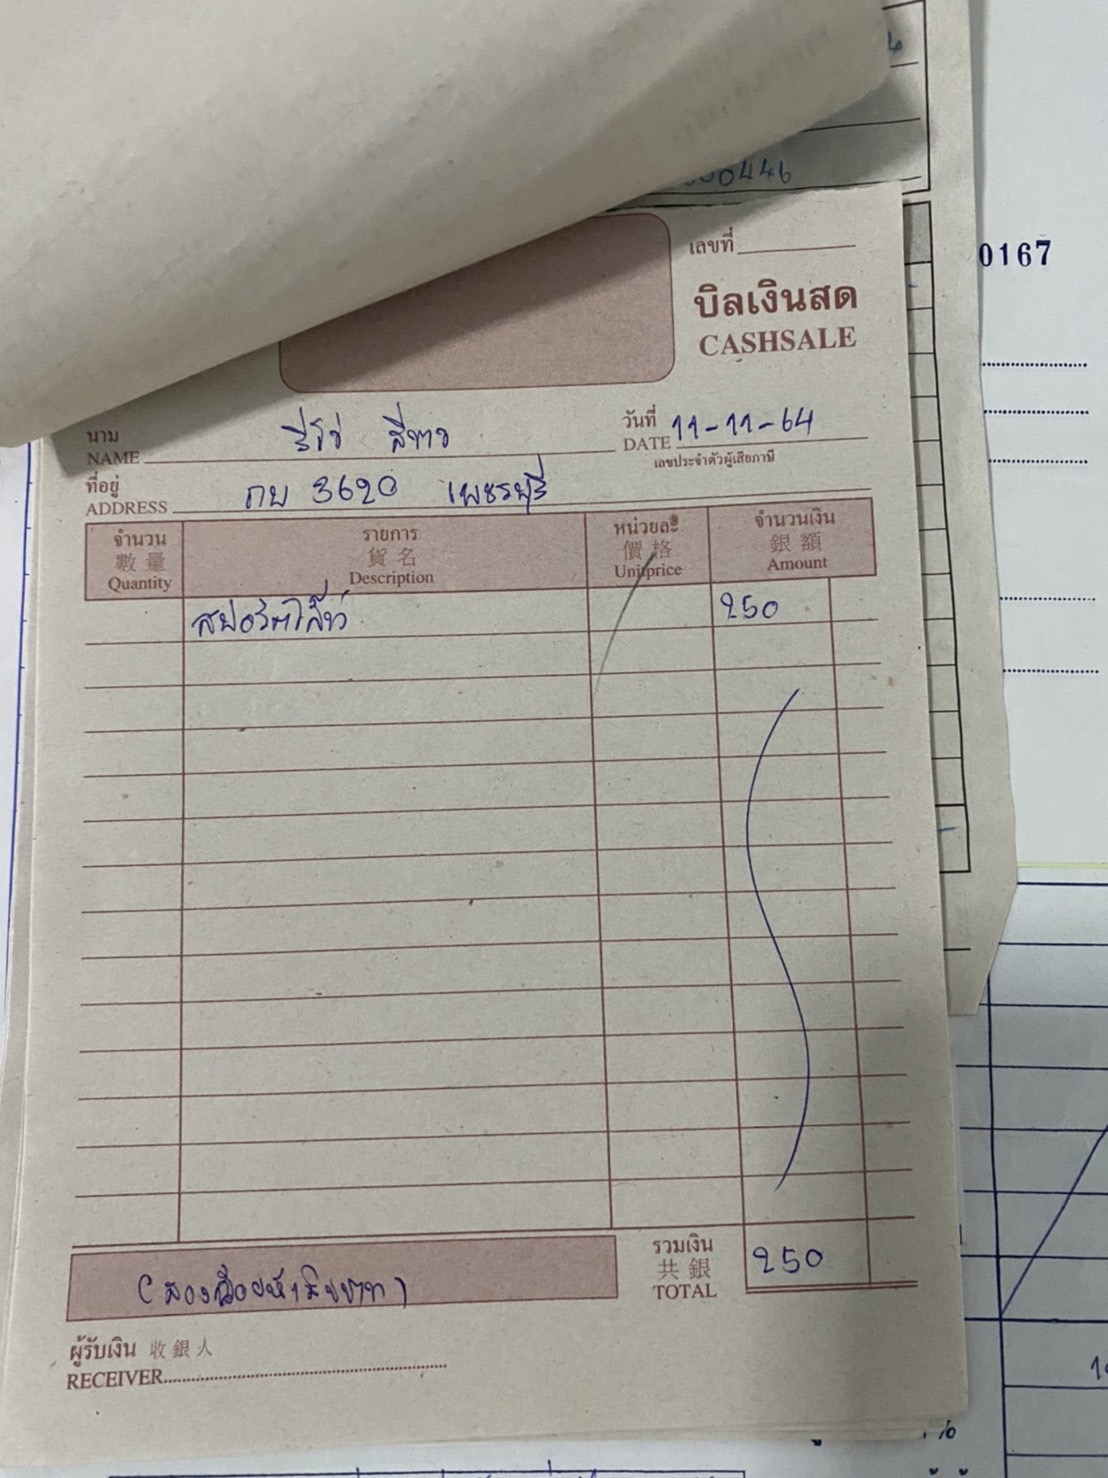 0446
เลขที่
0167
บิลเงินสด
CASHSALE
นาม
NAME
วีโก้ สีขาว
วันที่
DATE 11-11-64
เลขประจำตัวผู้เสียภาษี
ที่อยู่
ADDRESS
กบ 3620 เพชรบุรี
จำนวน รายการ หน่วยละ จำนวนเงิน
數量 貨名 價格 銀額
Quantity Description Unitprice Amount
สปอร์ตไล้ท์ 250
รวมเงิน
共銀
TOTAL
250
(สองร้อยห้าสิบบาท)
ผู้รับเงิน 收銀人
RECEIVER